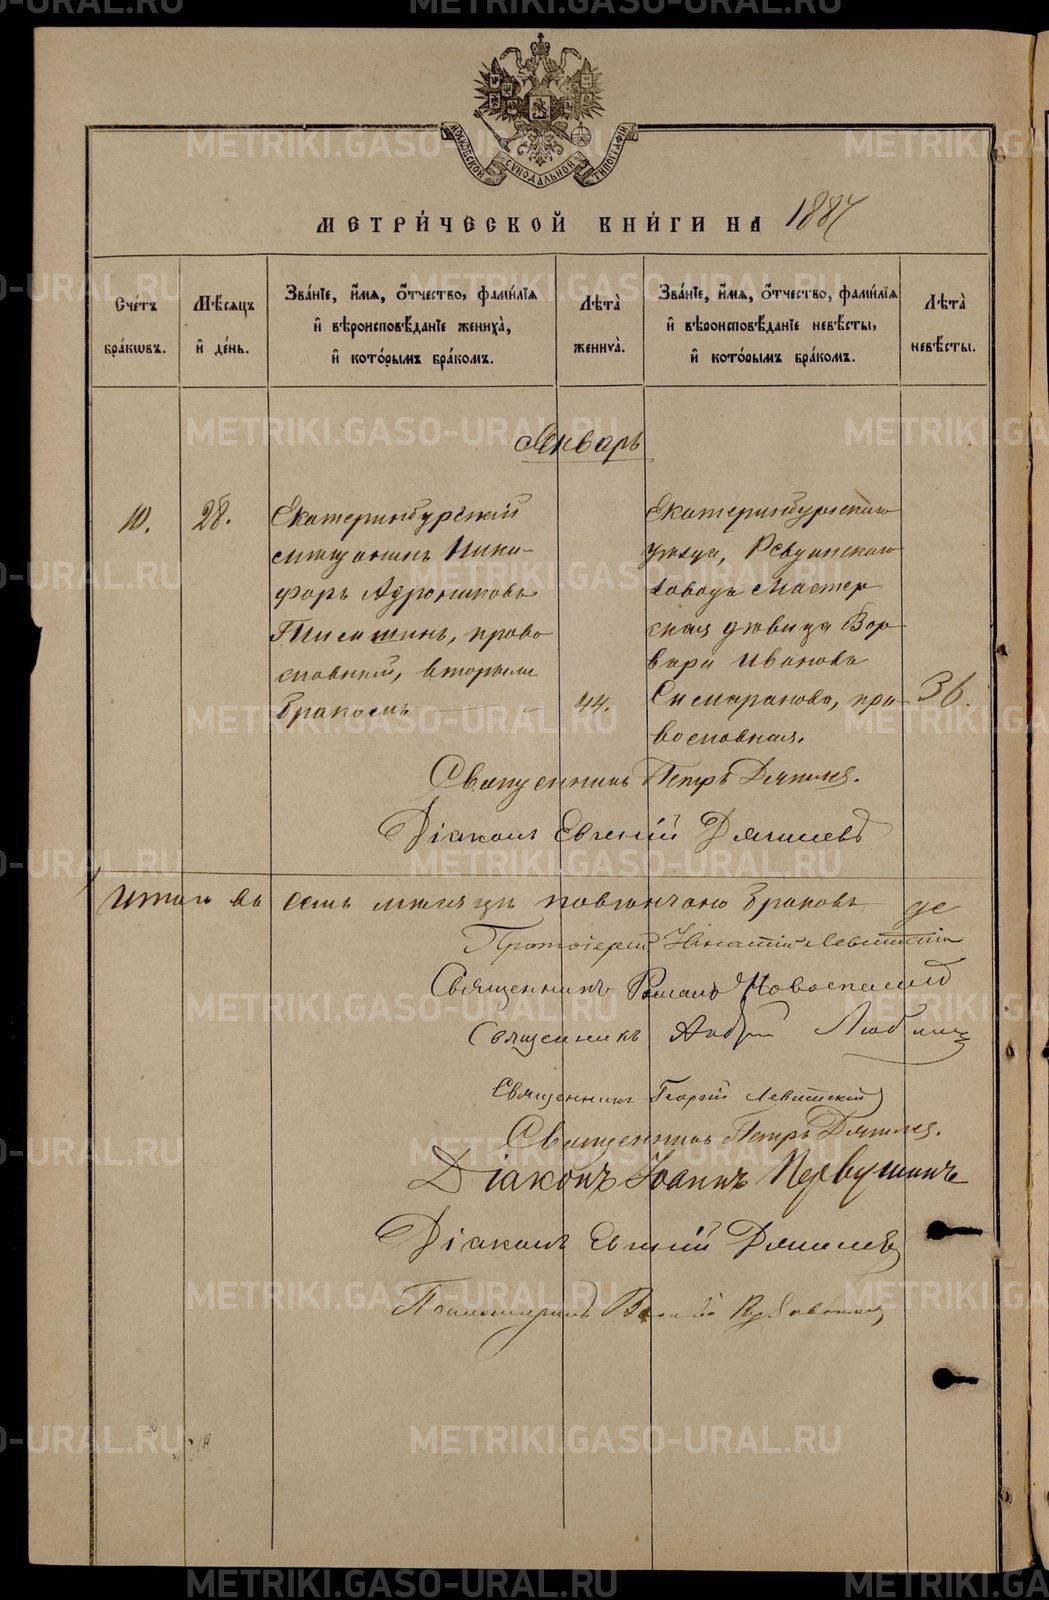 МОСКОВСКОЙ СѴНОДАЛЬНОЙ ТИПОГРАФІИ
МЕТРИ́ЧЕСКОЙ КНИ́ГИ НА 1887
Сче́тъ бра́кѡвъ.
Мѣ́сѧцъ и҆ де́нь.
Зва́нїе, и҆́мѧ, ѻ҆́тчество, фами́лїѧ и҆ вѣроисповѣ́данїе жениха̀, и҆ кото́рымъ бра́комъ.
Лѣта̀ жениха̀.
Зва́нїе, и҆́мѧ, ѻ҆́тчество, фами́лїѧ и҆ вѣроисповѣ́данїе невѣ́сты, и҆ кото́рымъ бра́комъ.
Лѣта̀ невѣ́сты.
Январь
10.
28.
Екатеринбургскій
мѣщанинъ Ники-
форъ Адрониковъ
православный, вторымъ
бракомъ
44.
Екатеринбургскаго
уѣзда, Ревдинскаго
завода мастер
ская дѣвица Вар
вара Иванова
пра-
вославная.
36.
Священникъ Петръ
Діаконъ Евгеній
Итого въ семъ мѣсяцѣ повѣнчано браковъ
Протоіерей Левитскій
Священникъ Романъ
Священникъ
Священникъ Георгій Левитскій
Священникъ Петръ
Діаконъ Іоаннъ Первушинъ
Діаконъ Евгеній
Псаломщикъ
METRIKI.GASO-URAL.RU